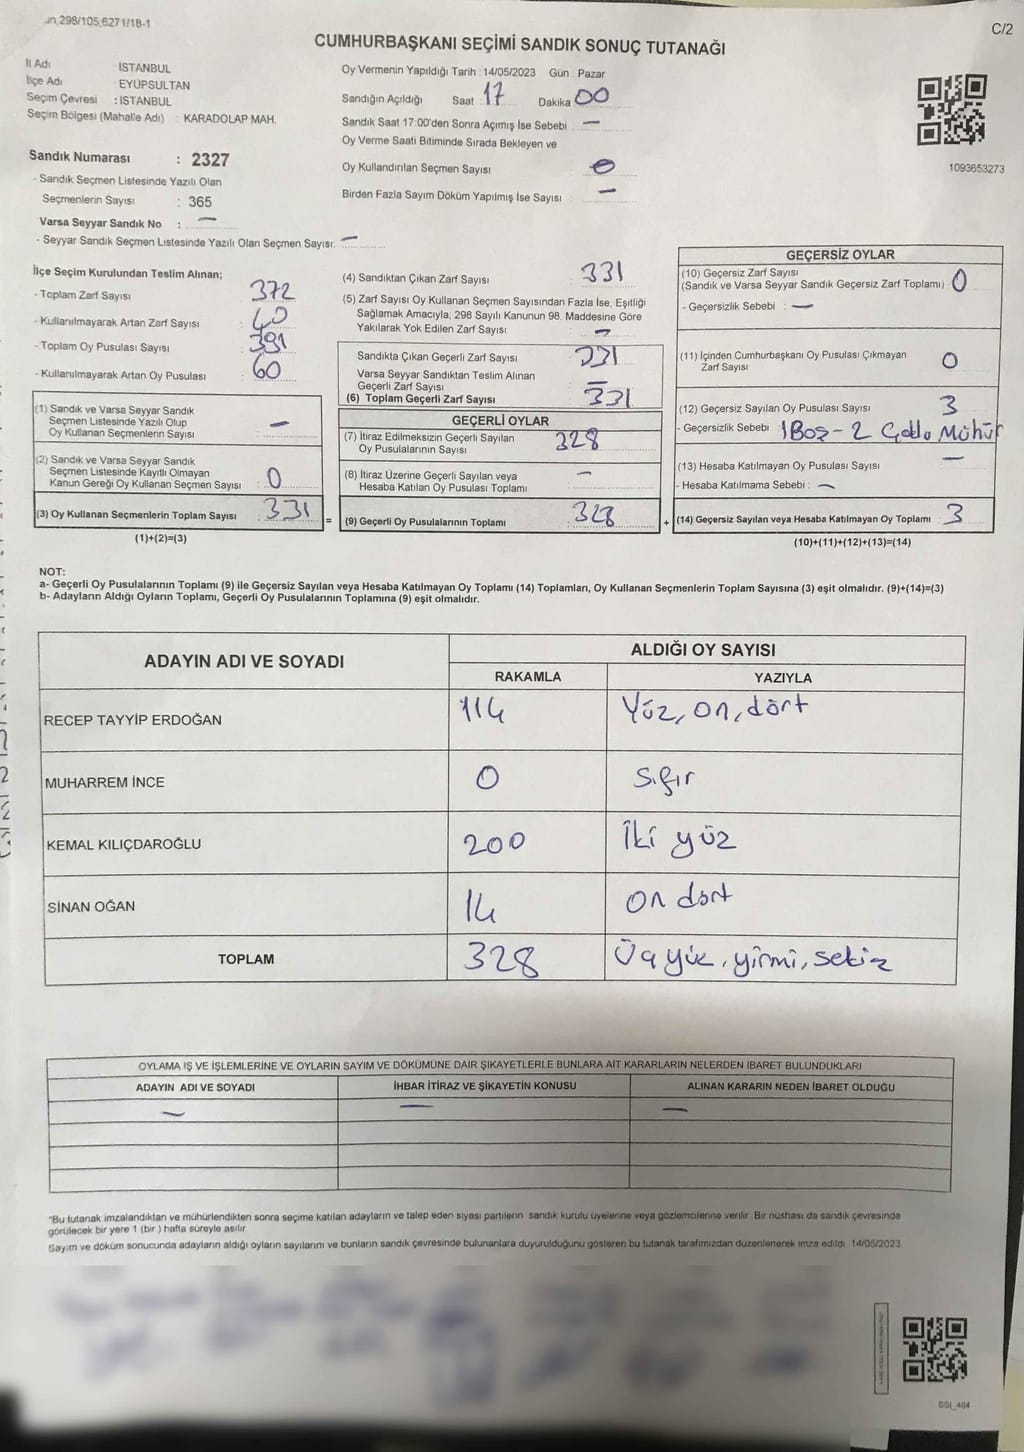 298/105;6271/18-1
C/2
CUMHURBAŞKANI SEÇİMİ SANDIK SONUÇ TUTANAĞI
İl Adı : İSTANBUL
İlçe Adı : EYÜPSULTAN
Seçim Çevresi : İSTANBUL
Seçim Bölgesi (Mahalle Adı) : KARADOLAP MAH.
Oy Vermenin Yapıldığı Tarih : 14/05/2023 Gün : Pazar
Sandığın Açıldığı Saat 17 Dakika 00
Sandık Saat 17:00'den Sonra Açımış İse Sebebi : —
Oy Verme Saati Bitiminde Sırada Bekleyen ve
Oy Kullandırılan Seçmen Sayısı : 0
Birden Fazla Sayım Döküm Yapılmış İse Sayısı : —
1093653273
Sandık Numarası : 2327
- Sandık Seçmen Listesinde Yazılı Olan
Seçmenlerin Sayısı : 365
Varsa Seyyar Sandık No : —
- Seyyar Sandık Seçmen Listesinde Yazılı Olan Seçmen Sayısı: —
İlçe Seçim Kurulundan Teslim Alınan;
- Toplam Zarf Sayısı : 372
- Kullanılmayarak Artan Zarf Sayısı : 40
- Toplam Oy Pusulası Sayısı : 391
- Kullanılmayarak Artan Oy Pusulası : 60
(1) Sandık ve Varsa Seyyar Sandık
Seçmen Listesinde Yazılı Olup
Oy Kullanan Seçmenlerin Sayısı : —
(2) Sandık ve Varsa Seyyar Sandık
Seçmen Listesinde Kayıtlı Olmayan
Kanun Gereği Oy Kullanan Seçmen Sayısı : 0
(3) Oy Kullanan Seçmenlerin Toplam Sayısı : 331
(1)+(2)=(3)
=
(4) Sandıktan Çıkan Zarf Sayısı : 331
(5) Zarf Sayısı Oy Kullanan Seçmen Sayısından Fazla İse, Eşitliği
Sağlamak Amacıyla, 298 Sayılı Kanunun 98. Maddesine Göre
Yakılarak Yok Edilen Zarf Sayısı : —
Sandıkta Çıkan Geçerli Zarf Sayısı : 331
Varsa Seyyar Sandıktan Teslim Alınan
Geçerli Zarf Sayısı : —
(6) Toplam Geçerli Zarf Sayısı : 331
GEÇERLİ OYLAR
(7) İtiraz Edilmeksizin Geçerli Sayılan
Oy Pusulalarının Sayısı : 328
(8) İtiraz Üzerine Geçerli Sayılan veya
Hesaba Katılan Oy Pusulası Toplamı : —
(9) Geçerli Oy Pusulalarının Toplamı : 328
+
GEÇERSİZ OYLAR
(10) Geçersiz Zarf Sayısı
(Sandık ve Varsa Seyyar Sandık Geçersiz Zarf Toplamı) : 0
- Geçersizlik Sebebi : —
(11) İçinden Cumhurbaşkanı Oy Pusulası Çıkmayan
Zarf Sayısı 0
(12) Geçersiz Sayılan Oy Pusulası Sayısı 3
- Geçersizlik Sebebi : 1 Boş - 2 Çoklu Mühür
(13) Hesaba Katılmayan Oy Pusulası Sayısı —
- Hesaba Katılmama Sebebi : —
(14) Geçersiz Sayılan veya Hesaba Katılmayan Oy Toplamı : 3
(10)+(11)+(12)+(13)=(14)
NOT:
a- Geçerli Oy Pusulalarının Toplamı (9) ile Geçersiz Sayılan veya Hesaba Katılmayan Oy Toplamı (14) Toplamları, Oy Kullanan Seçmenlerin Toplam Sayısına (3) eşit olmalıdır. (9)+(14)=(3)
b- Adayların Aldığı Oyların Toplamı, Geçerli Oy Pusulalarının Toplamına (9) eşit olmalıdır.
ADAYIN ADI VE SOYADI
ALDIĞI OY SAYISI
RAKAMLA YAZIYLA
RECEP TAYYİP ERDOĞAN 114 Yüz, on, dört
MUHARREM İNCE 0 Sıfır
KEMAL KILIÇDAROĞLU 200 İki yüz
SİNAN OĞAN 14 On dört
TOPLAM 328 Üç yüz, yirmi, sekiz
OYLAMA İŞ VE İŞLEMLERİNE VE OYLARIN SAYIM VE DÖKÜMÜNE DAİR ŞİKAYETLERLE BUNLARA AİT KARARLARIN NELERDEN İBARET BULUNDUKLARI
ADAYIN ADI VE SOYADI İHBAR İTİRAZ VE ŞİKAYETİN KONUSU ALINAN KARARIN NEDEN İBARET OLDUĞU
— — —
*Bu tutanak imzalandıktan ve mühürlendikten sonra seçime katılan adayların ve talep eden siyasi partilerin sandık kurulu üyelerine veya gözlemcilerine verilir. Bir nüshası da sandık çevresinde
görülecek bir yere 1 (bir ) hafta süreyle asılır.
Sayım ve döküm sonucunda adayların aldığı oyların sayılarını ve bunların sandık çevresinde bulunanlara duyurulduğunu gösteren bu tutanak tarafımızdan düzenlenerek imza edildi. 14/05/2023
SSI_404